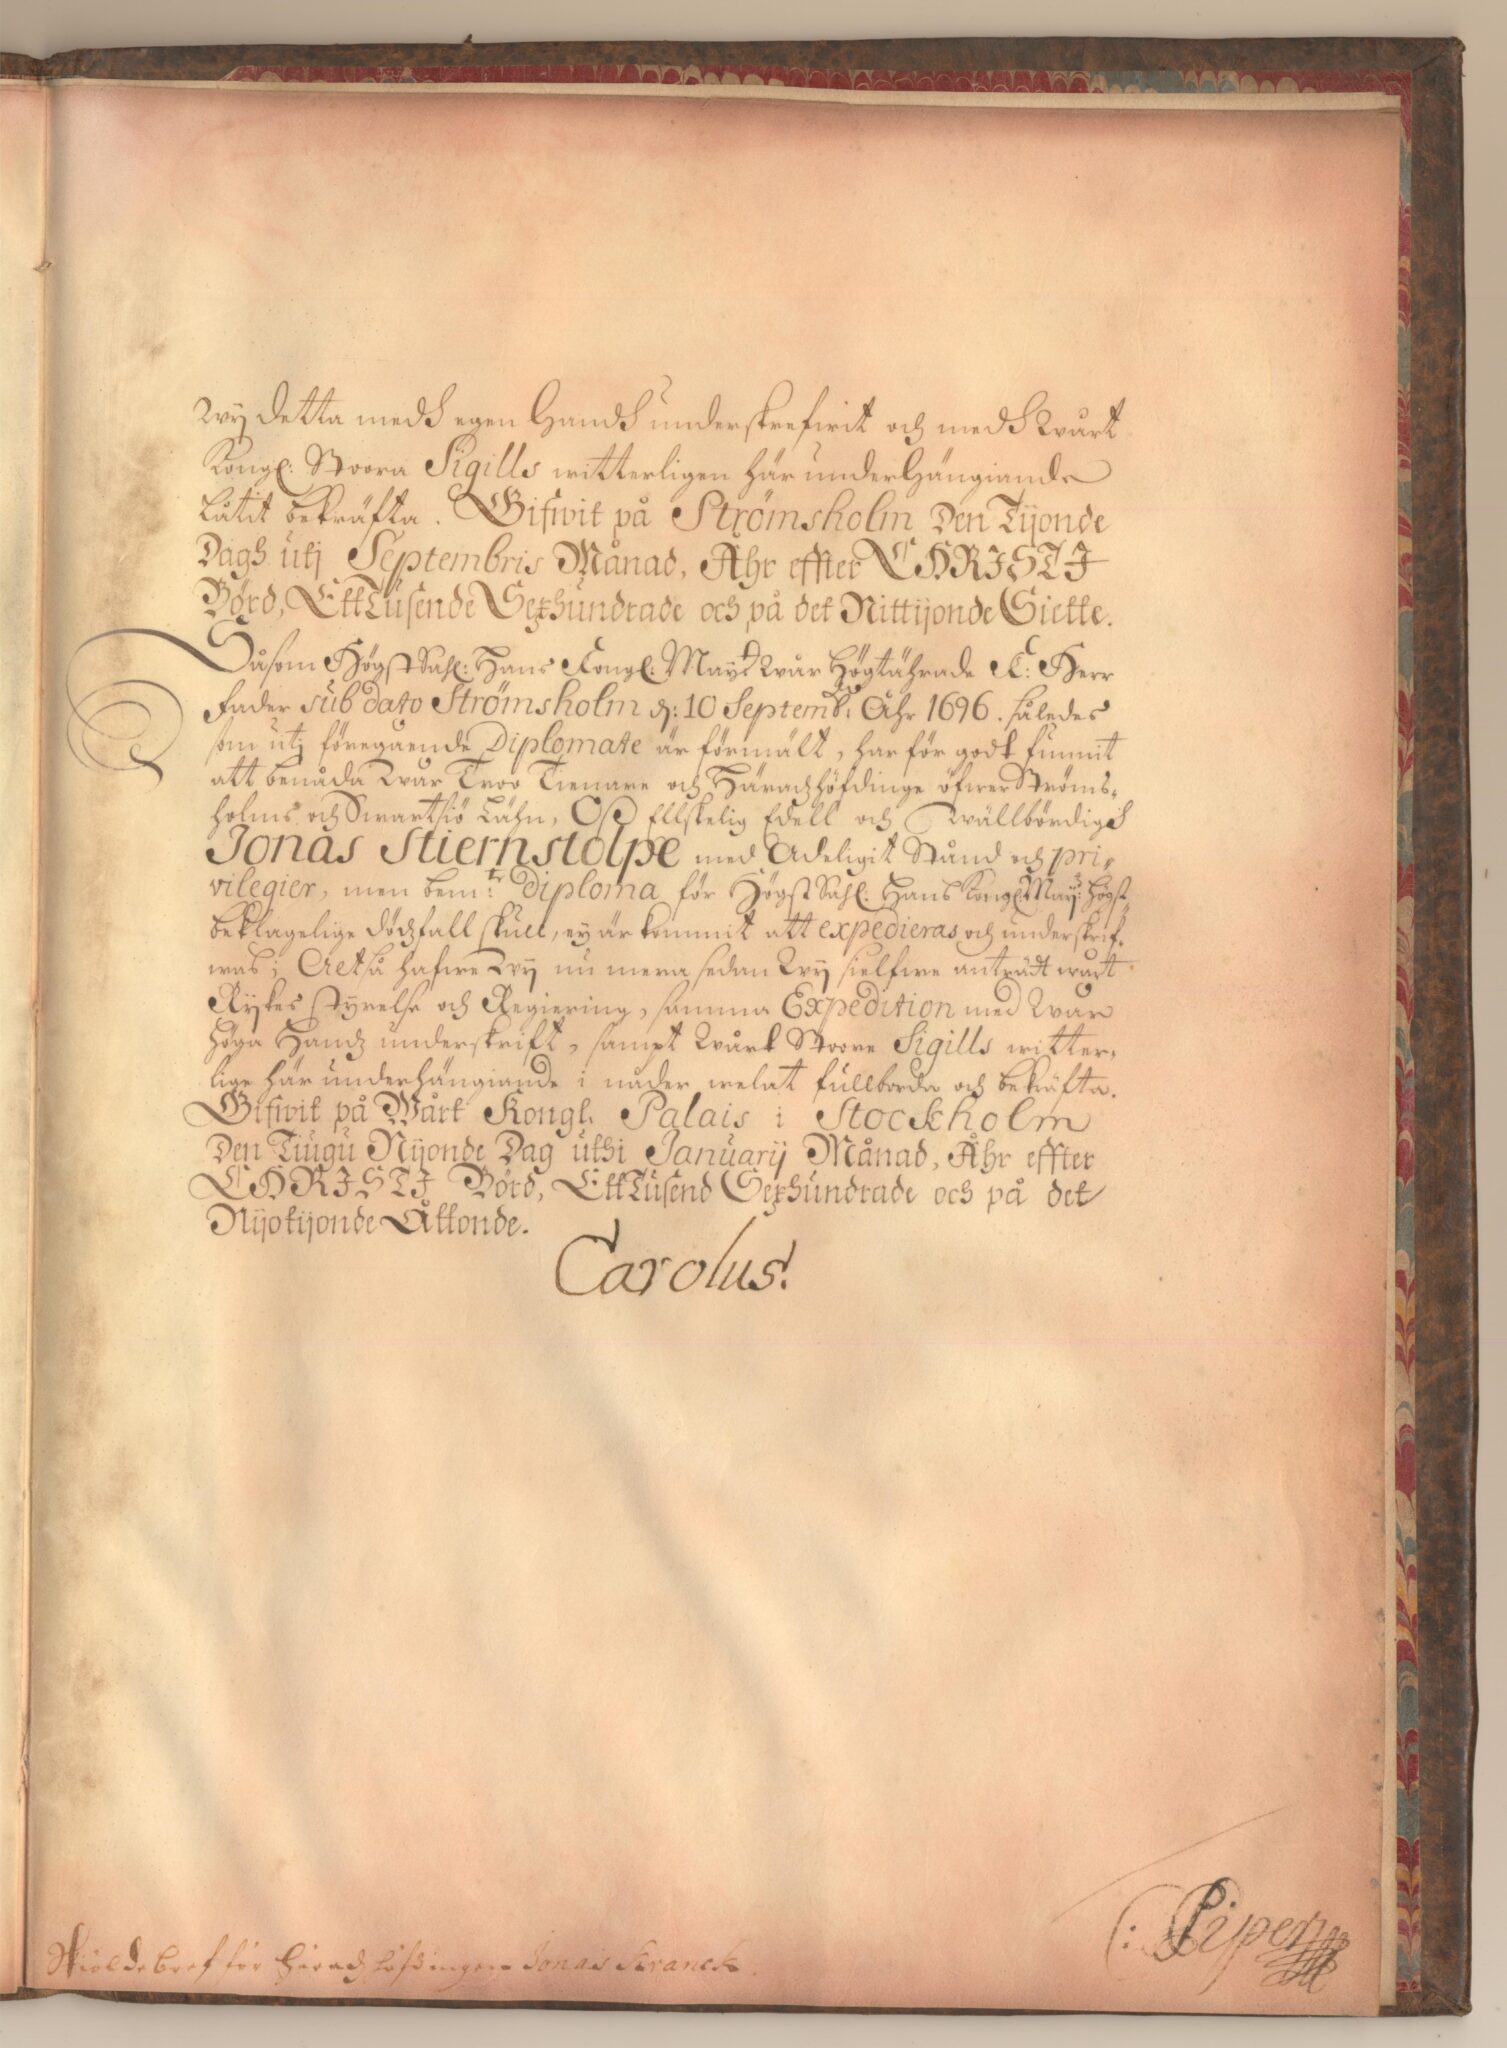 Wij detta medh egen Handh underskrefwit och medh Wårt
Kongl: Stoora Sigills witterligen här underhängiande
Låtit bekräfta. Gifwit på Strömsholm Den Tijonde
Dagh utj Septembris Månad, Åhr effter CHRISTJ
Börd, Ett Tusende Sexhundrade och på det Nittijonde Siette.
Såsom Högst Sahl: Hans Kongl: Maytt Wår Högtährade K: Herr
Fader sub dato Strömsholm d: 10 Septemb: Åhr 1696. således
som utj föregående Diplomate är förmält, har för godt funnit
att benåda Wår Troo Tienare och Häradzhöfdinge öfwer Ströms-
holms och Swartsiö Lähn, Oß Ellskelig Edell och Wällbördigh
Jonas Stiernstolpe med Adeligit Stånd och pri-
vilegier, men bemte Diploma för Högst Sahl: Hans Kongl: Maytz Högst-
beklagelige dödzfall skull, ey är kommit att expedieras och underskrif-
was; Altså hafwe Wij nu mera sedan Wij sielfwe anträdt wårt
Rijkes styrelse och Regiering, samma Expedition med Wår
Höga Handz underskrift, sampt Wårt Stoore Sigills witter-
lige här underhängiande i nåder welat fullborda och bekräfta.
Gifwit på Wårt Kongl. Palais i Stockholm
Den Tiugu Nijonde Dag uthi Januarij Månad, Åhr effter
CHRISTJ Börd, Ett Tusend Sexhundrade och på det
Nijotijonde Åttonde.
Carolus.
C: Piper
Skiöldebref för Häradzhöfdingen Jonas Kranck.